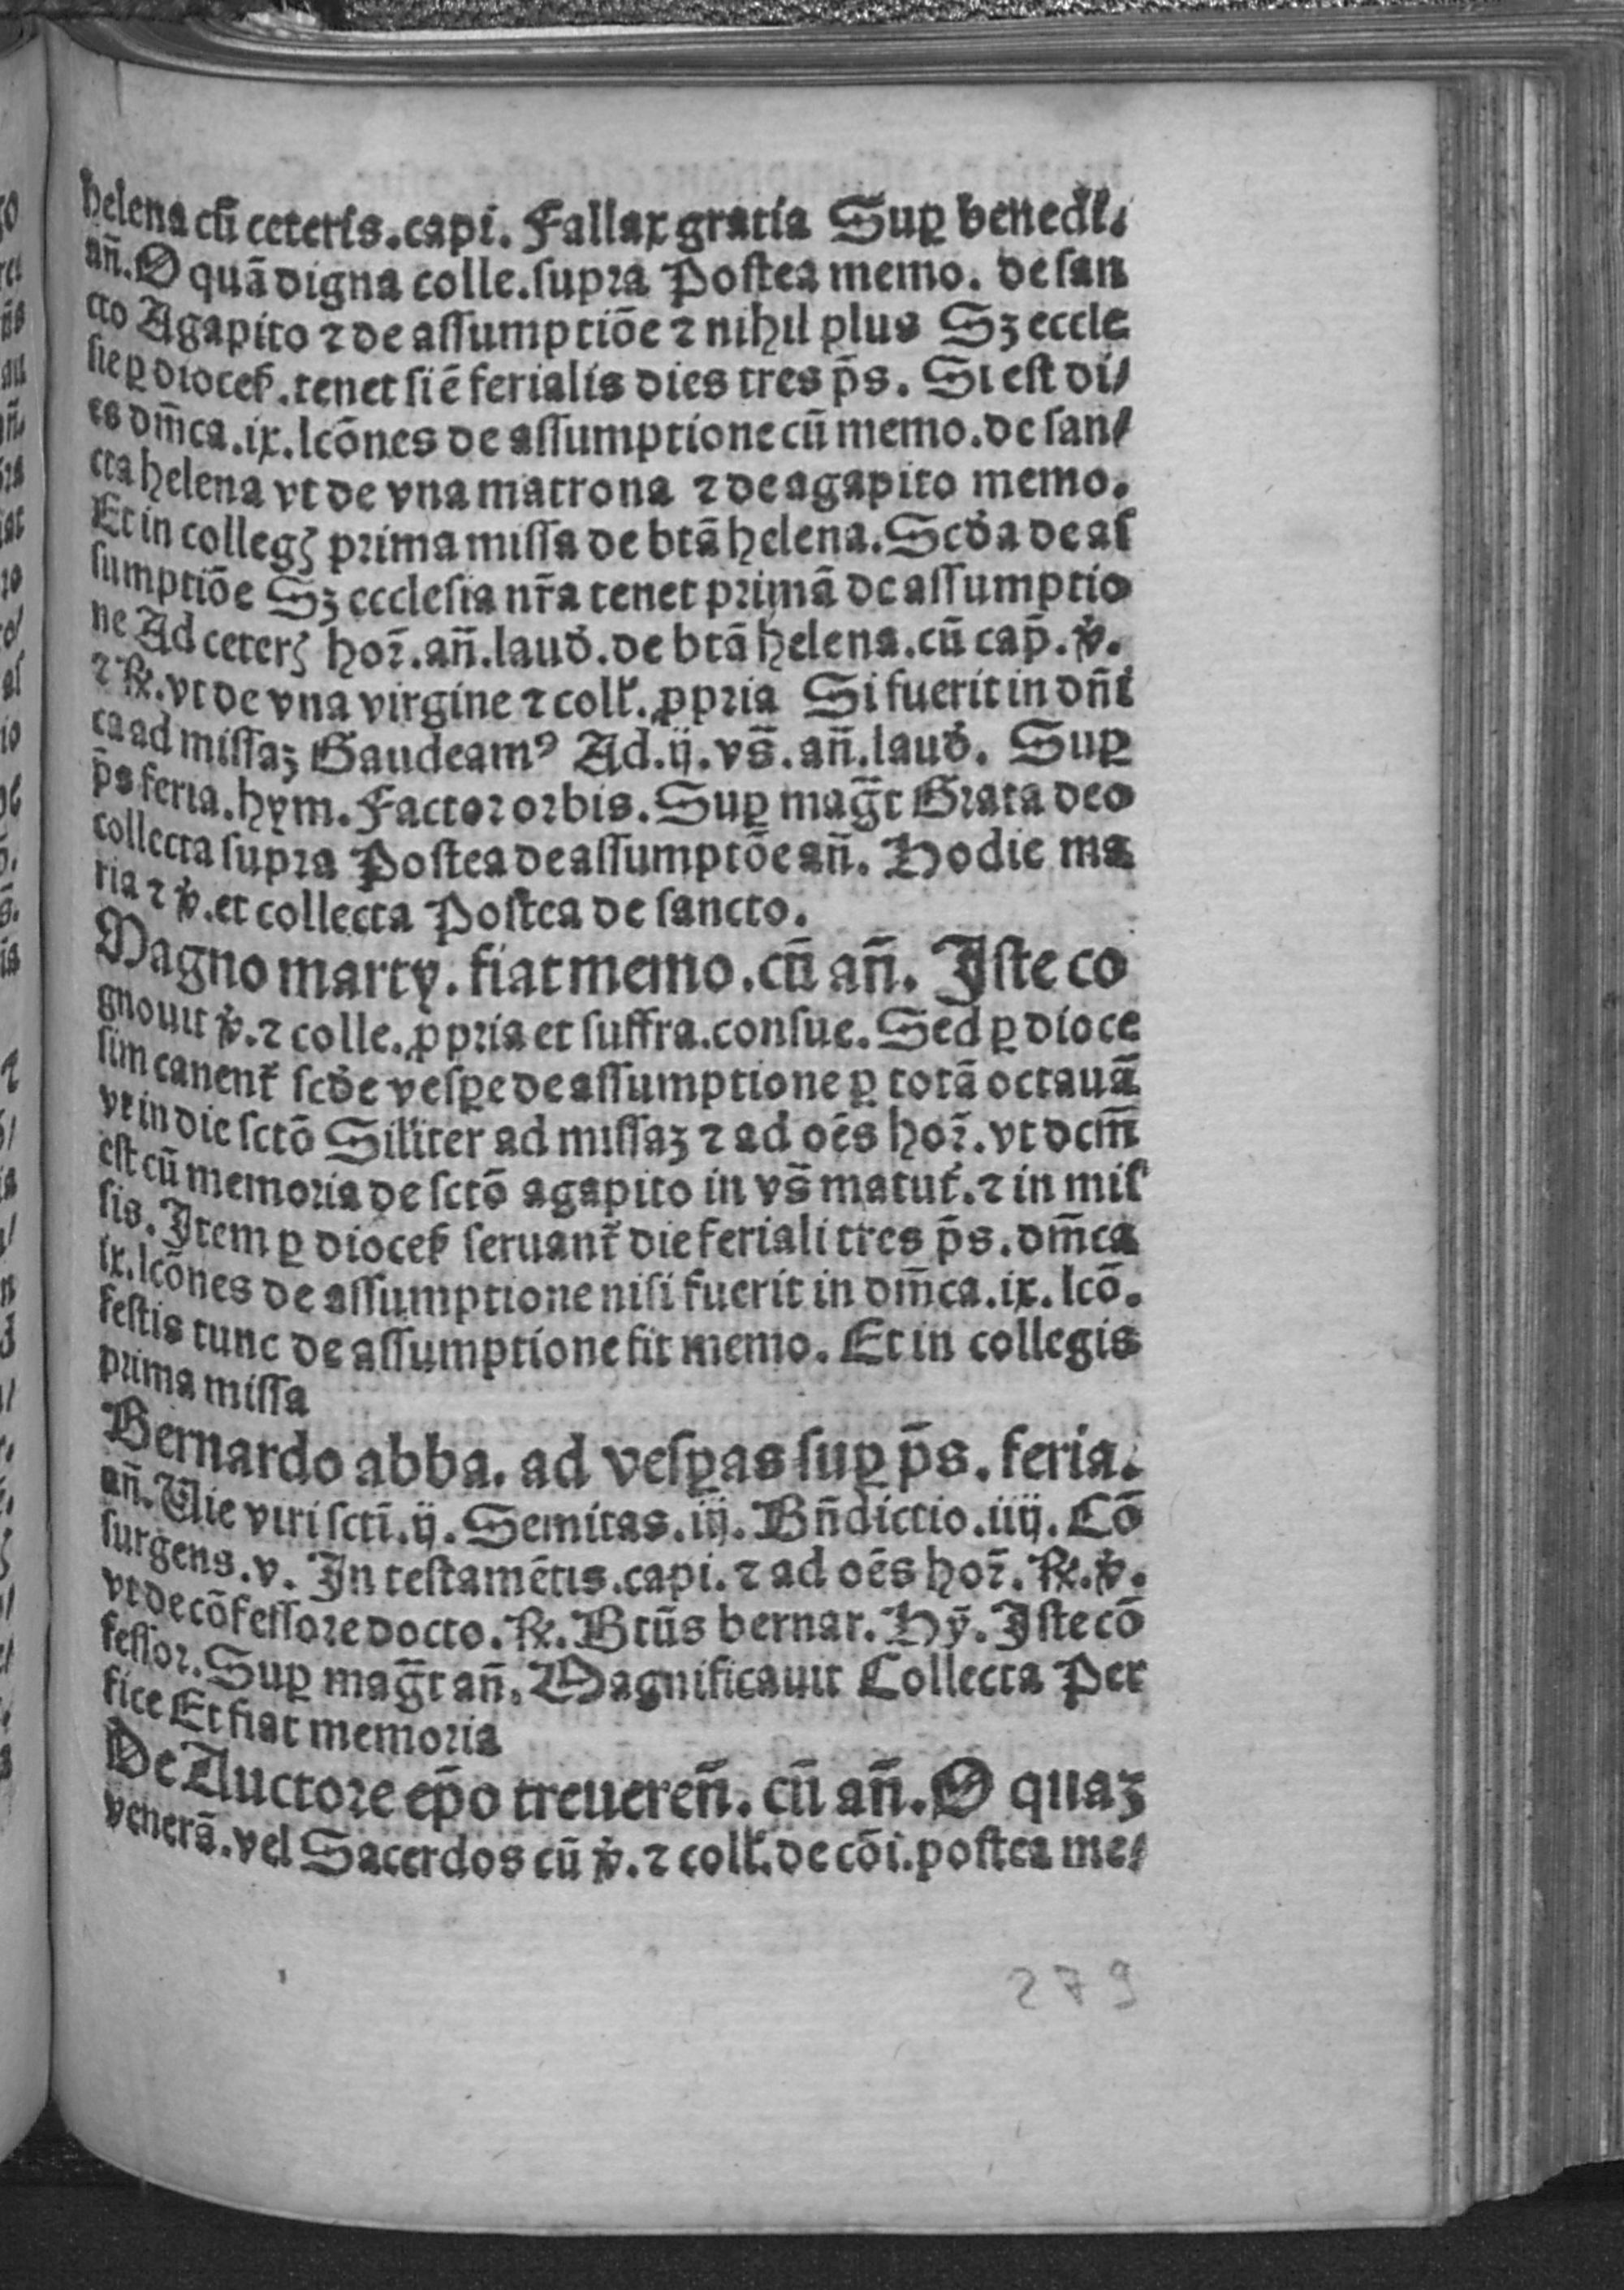 helena cū ceteris.capi. Fallax gratia Suꝑ benedi.
añ.O quā digna colle.supra Postea memo. de san
cto Agapito ⁊ de assumptiōe ⁊ nihil plus Sꝫ eccle
sie ꝑ diocesꝭ.tenet si ē ferialis dies tres p̄s. Si est di/
es dm̄ca.ix.lcōnes de assumptione cū memo.de san/
cta helena vt de vna matrona ⁊ de agapito memo.
Et in collegꝭ prima missa de btā helena.Scđa de as
sumptiōe Sꝫ ecclesia nr̄a tenet primā de assumptio
ne Ad ceterꝭ hoꝝ.añ.lauđ.de btā helena.cū cap̄.℣.
⁊ ℟.vt de vna virgine ⁊ coll̛.ꝓpria Si fuerit in dñi
ca ad missaꝫ Gaudeamꝰ Ad.ij.vs̄.añ.lauđ. Suꝑ
p̄s feria.hym.Factor orbis.Suꝑ mag̅t Grata deo
collecta supra Postea de assumptōe añ. Hodie ma
ria ⁊ ℣.et collecta Postea de sancto.
Magno marty.fiat memo.cū añ. Iste co
gnouit ℣.⁊ colle.ꝓpria et suffra.consue.Sed ꝑ dioce
sim canent̛ scđe vespe de assumptione ꝑ totā octauā
vt in die sctō Silīter ad missaꝫ ⁊ ad oēs hoꝝ.vt dcm̄
est cū memoria de sctō agapito in vs̄ matut̛.⁊ in mis
sis.Item ꝑ diocesꝭ seruant̛ die feriali tres p̄s.dm̄ca
ix.lcōnes de assumptione nisi fuerit in dm̄ca.ix.lcō.
festis tunc de assumptione fit memo. Et in collegis
prima missa
Bernardo abba. ad vesꝑas suꝑ p̄s.feria.
añ.Uie viri sctī.ij.Semitas.iij.Bñdictio.iiij.Cō
surgens.v. In testamētis.capi.⁊ ad oēs hoꝝ.℟.℣.
vt de cōfessore docto.℟.Btūs bernar.Hȳ.Iste cō
fessor.Suꝑ mag̅t añ.Magnificauit Collecta Per
fice Et fiat memoria
De Auctore ep̄o treuereñ.cū añ.O quaꝫ
venerā.vel Sacerdos cū ℣.⁊ coll̛.de cōi.postea me/
279